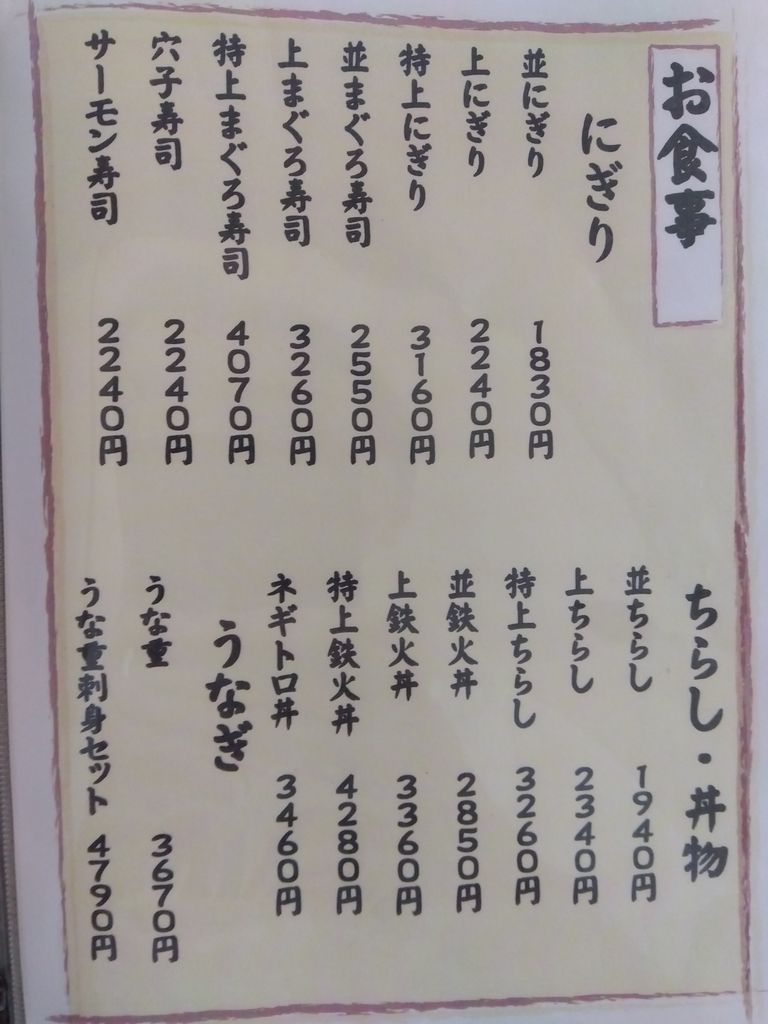 お食事
にぎり
並にぎり 1830円
上にぎり 2240円
特上にぎり 3160円
並まぐろ寿司 2550円
上まぐろ寿司 3260円
特上まぐろ寿司 4070円
穴子寿司 2240円
サーモン寿司 2240円
ちらし・丼物
並ちらし 1940円
上ちらし 2340円
特上ちらし 3260円
並鉄火丼 2850円
上鉄火丼 3360円
特上鉄火丼 4280円
ネギトロ丼 3460円
うなぎ
うな重 3670円
うな重刺身セット 4790円